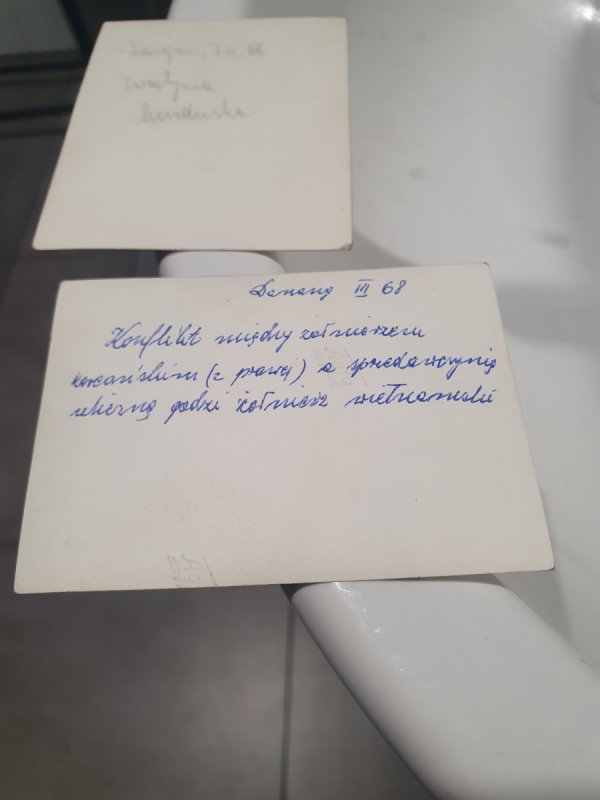 Saigon,
świątynia
hinduska
Danang III 68
Konflikt między żołnierzem
koreańskim (z prawej) a sprzedawczynią
uliczną godzi żołnierz wietnamski